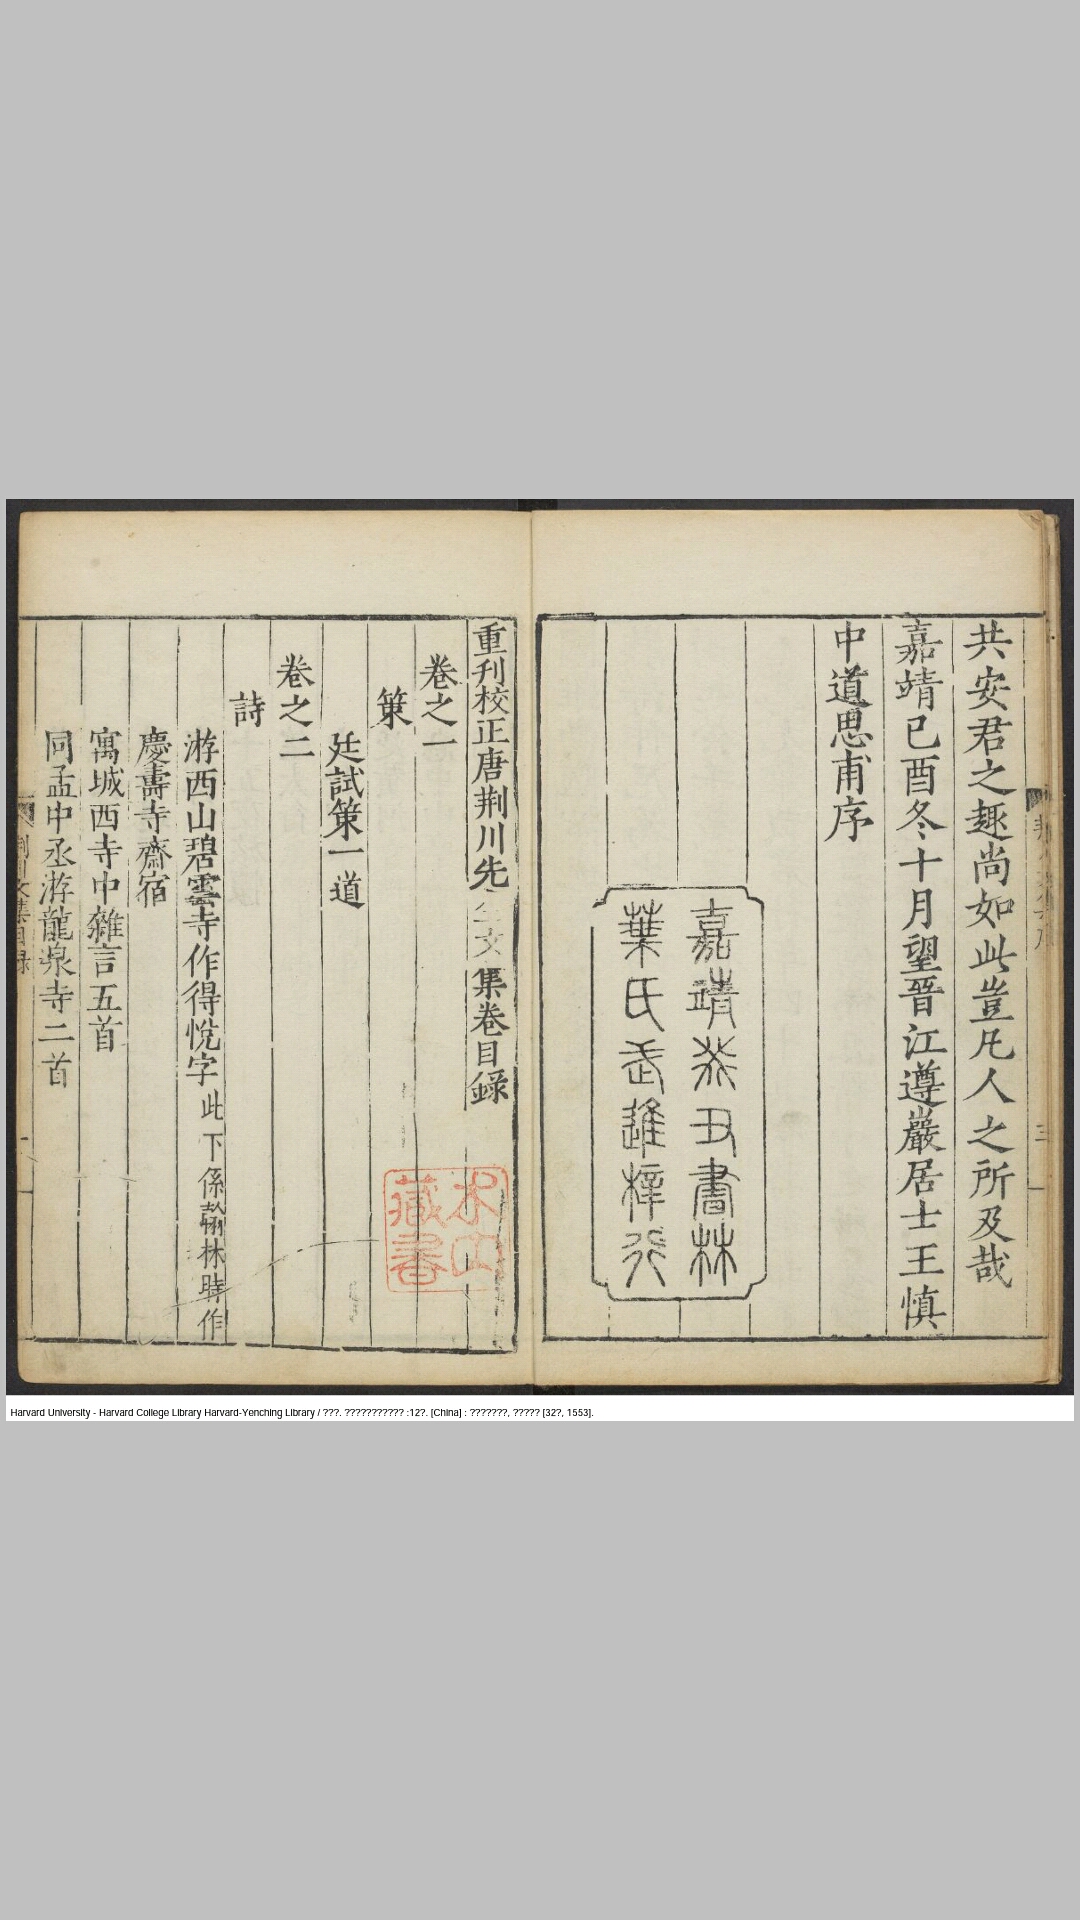 共安君之趣尚如此豈凡人之所及哉
嘉靖己酉冬十月望晉江遵巖居士王慎
中道思甫序
嘉靖癸丑書林
葉氏 梓行
重刊校正唐荆川先生文集卷目録
卷之一
策
廷試策一道
卷之二
詩
游西山碧雲寺作得悅字 此下係翰林時作
慶壽寺齋宿
寓城西寺中雜言五首
同孟中丞游龍泉寺二首
荆川文集目録
藏書
Harvard University - Harvard College Library Harvard-Yenching Library / ???. ??????????? :12?. [China] : ???????, ????? [32?, 1553].